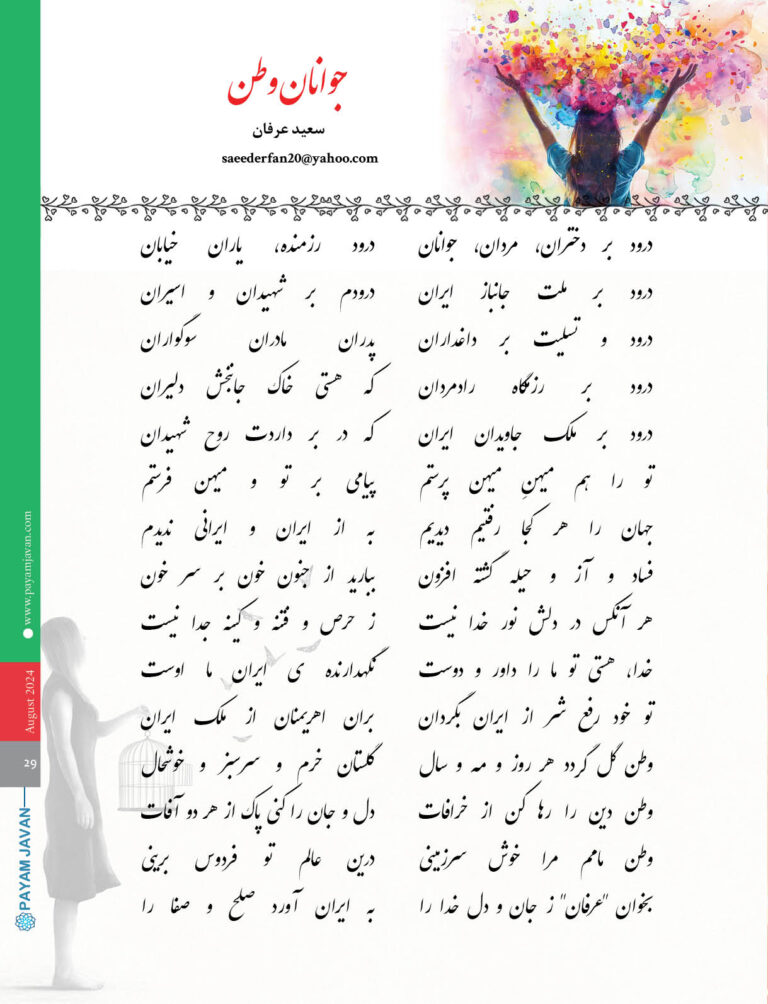 جوانان وطن
سعید عرفان
saeederfan20@yahoo.com
درود بر دختران، مردان، جوانان درود رزمنده، یاران خیابان
درود بر ملت جانباز ایران درودم بر شهیدان و اسیران
درود و تسلیت بر داغداران پدران مادران سوگواران
درود بر رزمگاه رادمردان که هستی خاک جانبخش دلیران
درود بر ملک جاویدان ایران که در بر داردت روح شهیدان
تو را هم میهنِ میهن پرستم پیامی بر تو و میهن فرستم
جهان را هر کجا رفتیم دیدیم به از ایران و ایرانی ندیدم
فساد و آز و حیله گشته افزون ببارید از جنون خون بر سر خون
هر آنکس در دلش نور خدا نیست ز حرص و فتنه و کینه جدا نیست
خدا، هستی تو ما را داور و دوست نگهدارنده ی ایران ما اوست
تو خود رفع شر از ایران بگردان بران اهریمنان از ملک ایران
وطن گل گردد هر روز و مه و سال گلستان خرم و سرسبز و خوشحال
وطن دین را رها کن از خرافات دل و جان را کنی پاک از هر دو آفات
وطن مامم مرا خوش سرزمینی درین عالم تو فردوس برینی
بخوان "عرفان" ز جان و دل خدا را به ایران آورد صلح و صفا را
www.payamjavan.com
August 2024
29
PAYAM JAVAN